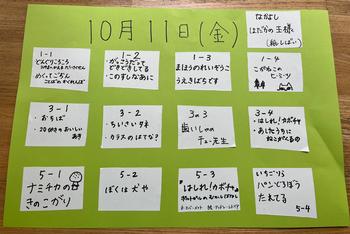 10月11日(金)
ながなし
はだかの王様
(紙しばい)
1-1
どんぐりころころ
めくってごらん
1-2
・がっこうだって
どきどきしてる
・このすしなあに
1-3
まほうのれいぞうこ
うえきばちです
1-4
こがねこの
ヒミツ
3-1
・おちば
・20分きのおいしい
3-2
・ちいさいタネ
・カラスのはてな?
3の3
歯いしゃの
チュー先生
3-4
・はしれ!カボチャ
・あしたうちに
ねこがくるの
5-1
ナミチカの
きのこがり
5-2
ぼくは犬や
5-3
はしれ!カボチャ
5-4
いちごりら
パンどろぼう
たえてる